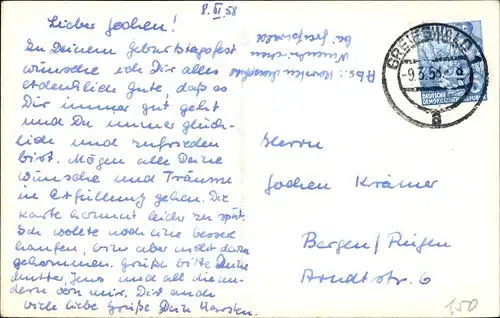 8. III. 58
Lieber Jochen!
Zu Deinem Geburtstagsfest
wünsche ich Dir alles
erdenklich gute, daß es
Dir immer gut geht
und Du immer glück-
lich und zufrieden
bist. Mögen alle Deine
Wünsche und Träume
in Erfüllung gehen. Die
Karte kommt leider zu spät.
Ich wollte noch eine besser
kaufen, bin aber nicht dazu
gekommen. Grüße bitte Deine
Mutter, Jens und all die an-
dern von mir. Dir auch
viele liebe Grüße Dein Karsten.
Abs.: Karsten
bei Greifswald
GREIFSWALD 1
-9.3.58
a
DEUTSCHE
DEMOKRATISCHE REPUBLIK
Herrn
Jochen Krämer
Bergen/Rügen
Arndtstr. 6
150